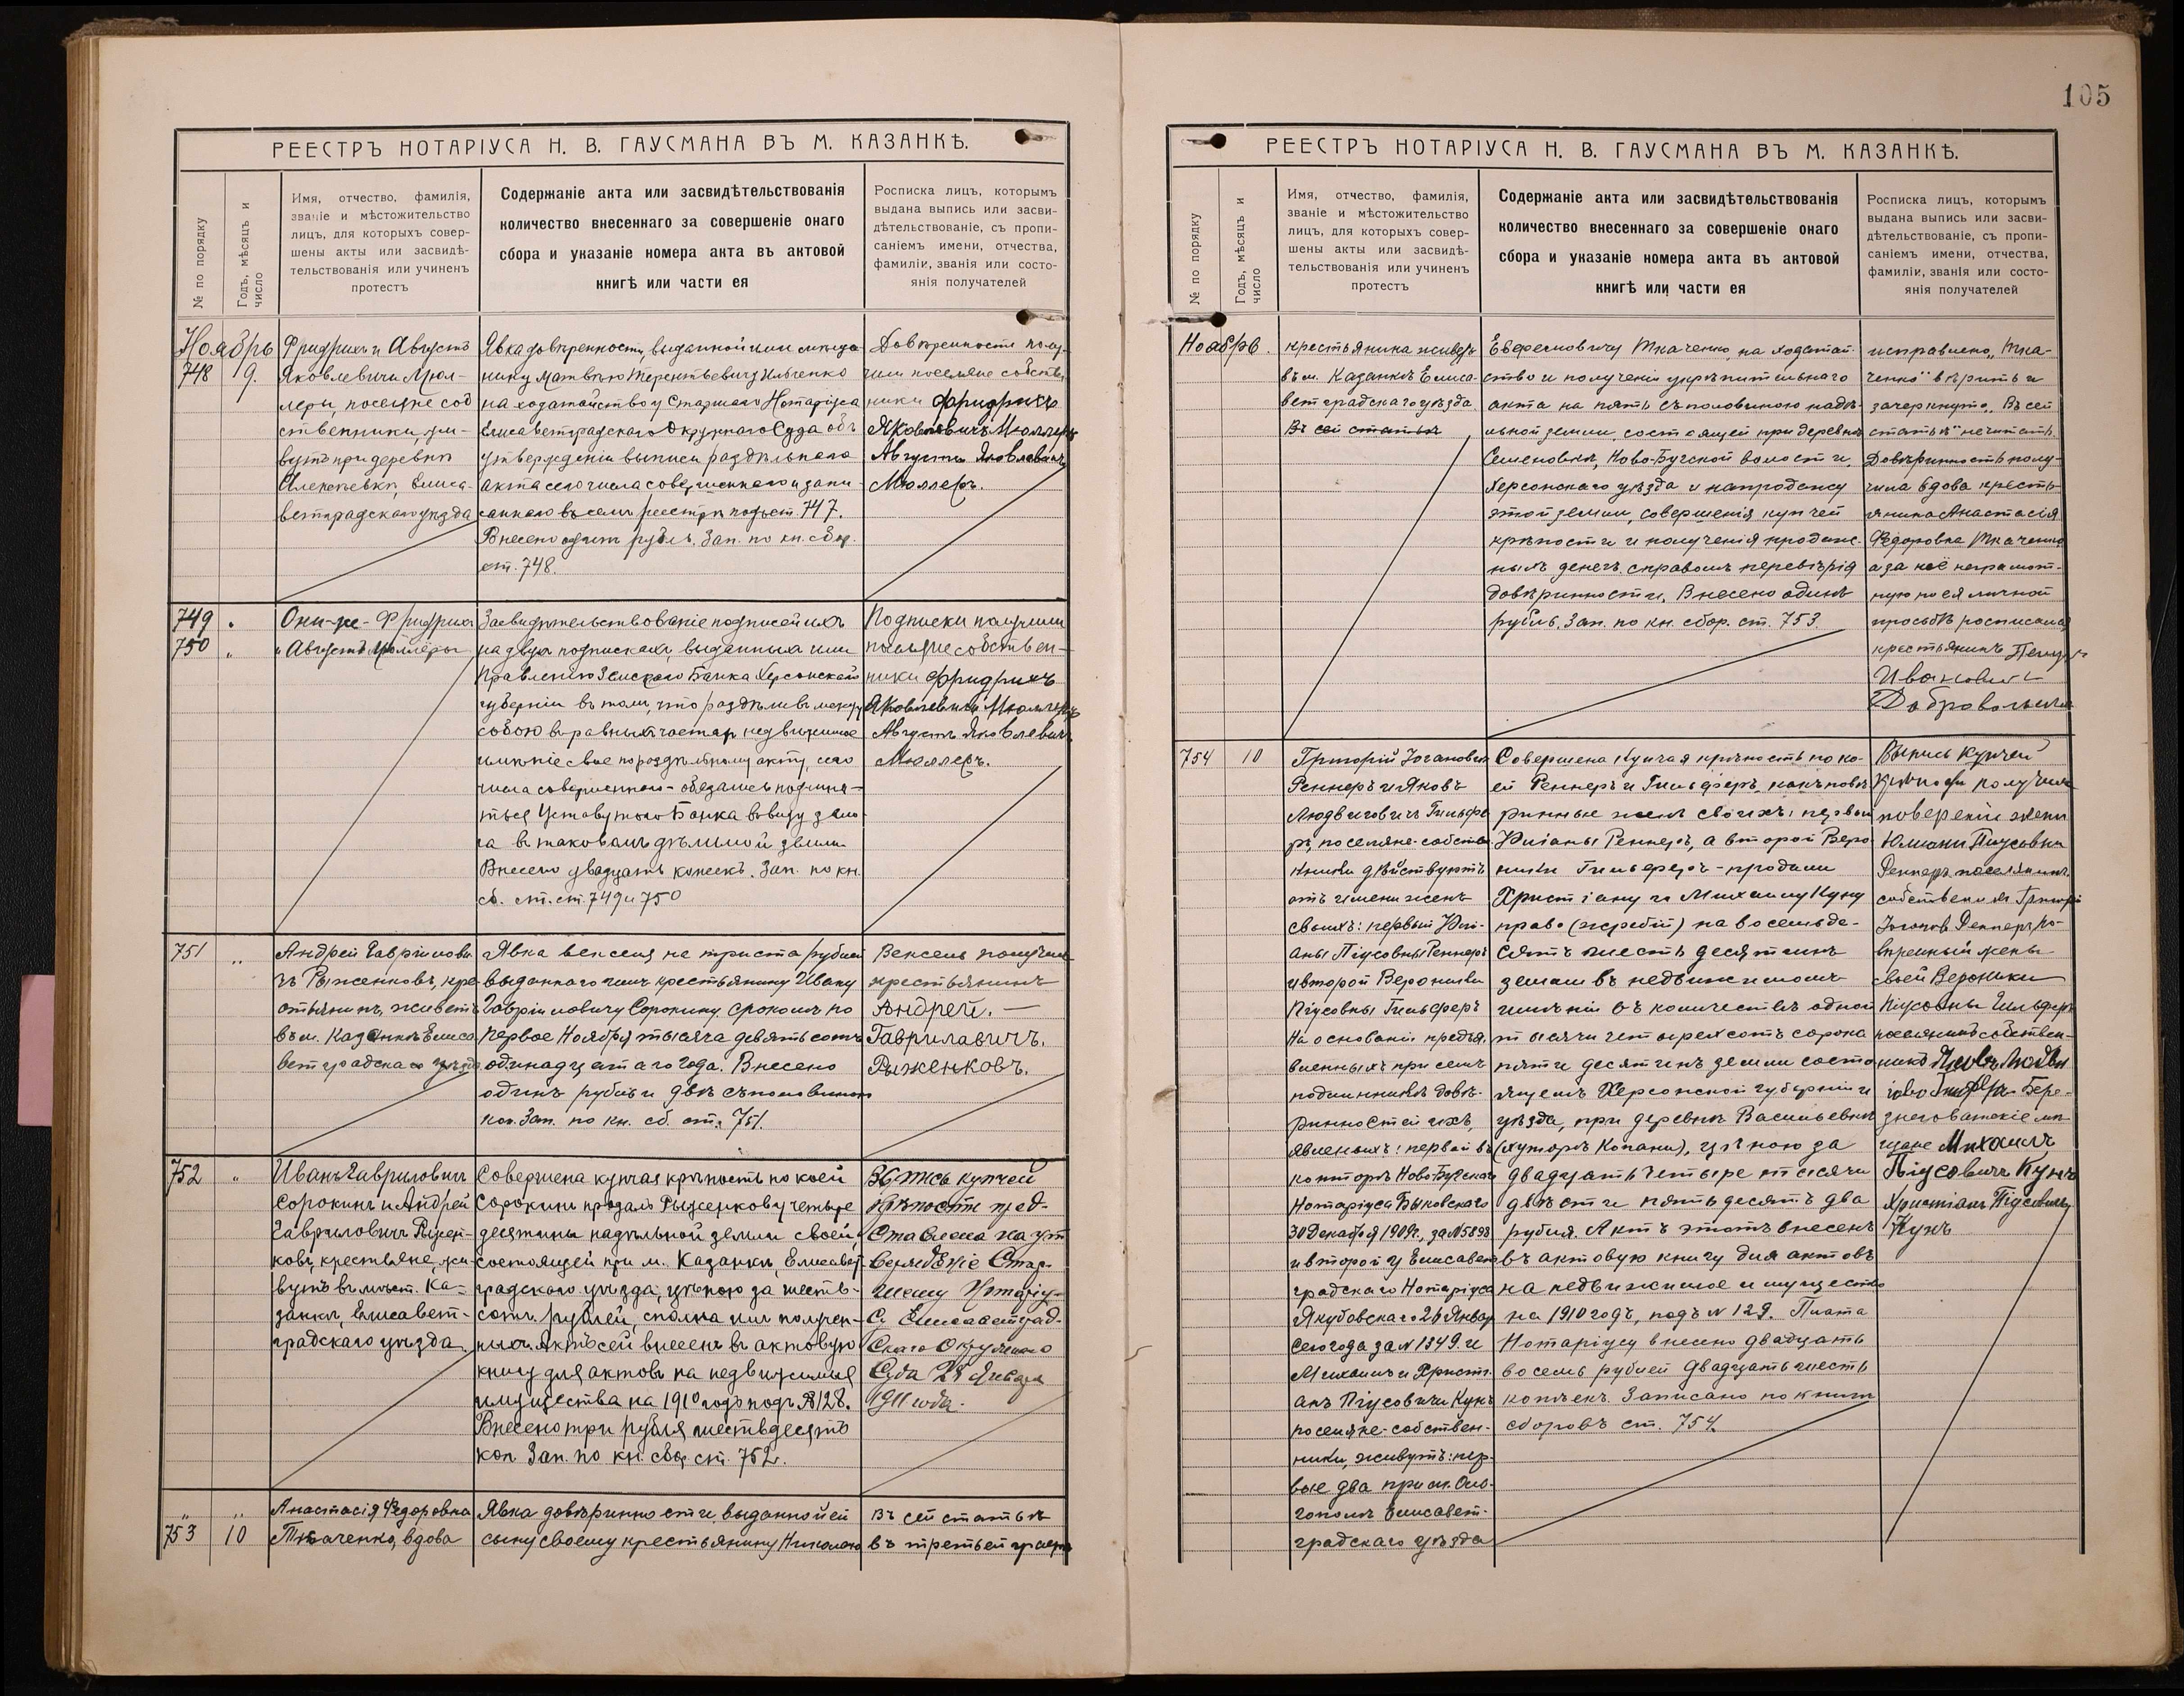 105
РЕЕСТРЪ НОТАРІУСА Н. В. ГАУСМАНА ВЪ М. КАЗАНКѢ.
№ по порядку
Годъ, мѣсяцъ и
число
Имя, отчество, фамилія,
званіе и мѣстожительство
лицъ, для которыхъ совер-
шены акты или засвидѣ-
тельствованія или учиненъ
протестъ
Содержаніе акта или засвидѣтельствованія
количество внесеннаго за совершеніе онаго
сбора и указаніе номера акта въ актовой
книгѣ или части ея
Росписка лицъ, которымъ
выдана выпись или засви-
дѣтельствованіе, съ пропи-
саніемъ имени, отчества,
фамиліи, званія или состо-
янія получателей
Ноябрь
748 9.
Фридрихъ и Августъ
Яковлевичи Мюл-
леры, поселяне соб
ственники, жи-
вутъ при деревнѣ
Алексѣевкѣ, Елиса-
ветградскаго уѣзда
Явка довѣренности, выданной ими мѣща
нину Матвѣю Терентьевичу Ильченко
на ходатайство у Старшаго Нотаріуса
Елисаветградскаго Окружнаго Суда объ
утвержденіи выписи раздѣльнаго
акта сего числа совершеннаго и запи-
саннаго въ семъ реестрѣ подъ ст. 747.
Внесено одинъ рубль. Зап. по кн. сбор.
ст. 748.
Довѣренность полу-
чили поселяне собствен
ники Фридрихъ
Яковлевичъ Мюллеръ
Августъ Яковлевичъ
Мюллеръ.
749 "
750 "
Они-же - Фридрихъ
и Августъ Мюллеры
Засвидѣтельствованіе подписей ихъ
на двухъ подпискахъ, выданныхъ ими
Правленію Земскаго Банка Херсонской
губерніи въ томъ, что раздѣливъ между
собою въ равныхъ частяхъ недвижимое
имѣніе свое по раздѣльному акту, сего
числа совершенному - обязались подчиня-
ться Уставу того Банка въ виду зало-
га въ таковомъ дѣлимой земли
Внесено двадцать копѣекъ. Зап. по кн.
сб. ст. ст. 749 и 750
Подписки получили
поселяне собствен-
ники Фридрихъ
Яковлевичъ Мюллеръ
Августъ Яковлевичъ
Мюллеръ.
751 "
Андрей Гавриловичъ
Рыженковъ, кре-
стьянинъ, живетъ
въ м. Казанкѣ Елиса
ветградскаго уѣзда
Явка векселя на триста рублей
выданнаго имъ крестьянину Ивану
Гавриловичу Сорокину срокомъ по
первое Ноября тысяча девятьсотъ
одинадцатаго года. Внесено
одинъ рубль и двѣ съ половиною
коп. Зап. по кн. сб. ст. 751.
Вексель получилъ
крестьянинъ
Андрей. -
Гаврилавичъ.
Рыженковъ.
752 "
Иванъ Гавриловичъ
Сорокинъ и Андрей
Гавриловичъ Рыжен-
ковъ, крестьяне, жи-
вутъ въ мѣст. Ка-
занкѣ, Елисавет-
градскаго уѣзда
Совершена купчая крѣпость по коей
Сорокинъ продалъ Рыженкову четыре
десятины надѣльной земли своей,
состоящей при м. Казанкѣ, Елисавет-
градскаго уѣзда, цѣною за шесть-
сотъ рублей, сполна имъ получен-
ныхъ. Актъ сей внесенъ въ актовую
книгу для актовъ на недвижимыя
имущества на 1910 годъ подъ №128.
Внесено три рубля шестьдесятъ
коп. Зап. по кн. сбор. ст. 752.
Выпись купчей
крѣпости пред-
ставлена на ут
вержденіе Стар-
шему Нотаріу-
су Елисаветград-
скаго Окружнаго
Суда 28 Января
1911 года.
" "
753 10
Анастасія Ѳедоровна
Ткаченко, вдова
Явка довѣринности, выданной ей
сыну своему крестьянину Николаю
Въ сей статьѣ
въ третьей графѣ
РЕЕСТРЪ НОТАРІУСА Н. В. ГАУСМАНА ВЪ М. КАЗАНКѢ.
№ по порядку
Годъ, мѣсяцъ и
число
Имя, отчество, фамилія,
званіе и мѣстожительство
лицъ, для которыхъ совер-
шены акты или засвидѣ-
тельствованія или учиненъ
протестъ
Содержаніе акта или засвидѣтельствованія
количество внесеннаго за совершеніе онаго
сбора и указаніе номера акта въ актовой
книгѣ или части ея
Росписка лицъ, которымъ
выдана выпись или засви-
дѣтельствованіе, съ пропи-
саніемъ имени, отчества,
фамиліи, званія или состо-
янія получателей
Ноябрь.
крестьянина живетъ
въ м. Казанкѣ Елиса-
ветградскаго уѣзда
Въ сей статьѣ
Евересновичу Ткаченко, на ходатай-
ство и полученіи укрѣпительнаго
акта на пять съ половиною надѣ-
льной земли, состоящей при деревнѣ
Семеновкѣ, Ново-Бугской волости,
Херсонскаго уѣзда и на продажу
этой земли, совершенія купчей
крѣпости и полученія продаж-
ныхъ денегъ, съ правомъ перевѣрія
довѣринности. Внесено одинъ
рубль. Зап. по кн. сбор. ст. 753.
исправлено „Тка-
ченко" вѣрить и
зачеркнуто „Въ сей
статьѣ" не читать
Довѣринность полу-
чила вдова кресть-
янина Анастасія
Ѳедоровна Ткаченко
а за неё неграмот-
ную по ея личной
просьбѣ росписался
крестьянинъ
Ивановичъ
754 10
Григорій Іогановичъ
Реннеръ и Яковъ
Людвиговичъ Гильфе
ръ, поселяне-собстве
нники дѣйствуютъ
отъ имени женъ
своихъ: первый Юлі-
аны Піусовны Реннеръ
и второй Вероники
Піусовны Гильферъ
На основаніи предъя
вленныхъ при семъ
подлинныхъ довѣ-
ринностей ихъ,
явленныхъ: первой въ
конторѣ Ново-Бугскаго
Нотаріуса Быковскаго
30 Декабря 1909 г., за №5898
и второй у Елисавет-
градскаго Нотаріуса
Якубовскаго 26 Января
сего года за №1349. и
Михаилъ и Христі-
анъ Піусовичи Кунъ
поселяне-собствен-
ники, живутъ: пер-
вые два при
Елисавет-
градскаго уѣзда
Совершена купчая крѣпость по ко-
ей Реннеръ и Гильферъ, какъ повѣ-
ринные женъ своихъ: первый
Юліаны Реннеръ, а второй Веро-
ники Гильферъ - продали
Христіану и Михаилу Кунъ
право (жребій) на восемьде-
сятъ шесть десятинъ
земли въ недвижимомъ
имѣніи въ количествѣ одной
тысячи четырехсотъ сорока
пяти десятинъ земли состо
ящемъ Херсонской губерніи и
уѣзда, при деревнѣ Васильевкѣ
(хуторъ Копани), цѣною за
двадцать четыре тысячи
двѣсти пятьдесятъ два
рубля. Актъ этотъ внесенъ
въ актовую книгу для актовъ
на недвижимое имущество
на 1910 годъ, подъ № 129. Плата
Нотаріусу внесено двадцать
восемь рублей двадцать шесть
копѣекъ. Записано по книгѣ
сборовъ ст. 754.
Выпись купчей
крѣпости получили
поверений жены
Юлиани Пиусовни
Реннеръ поселянинъ
собственникъ Григорій
Іогановъ Реннеръ, по-
вѣренный жены
своей Вероники
Піусовны Гильферъ
поселянинъ собствен-
никъ Яковъ Людви
гово Гильферъ Бере-
знеговатскіе мѣ-
щане Михаилъ
Піусовичъ Кунъ
Христіанъ Піусовичъ
Кунъ